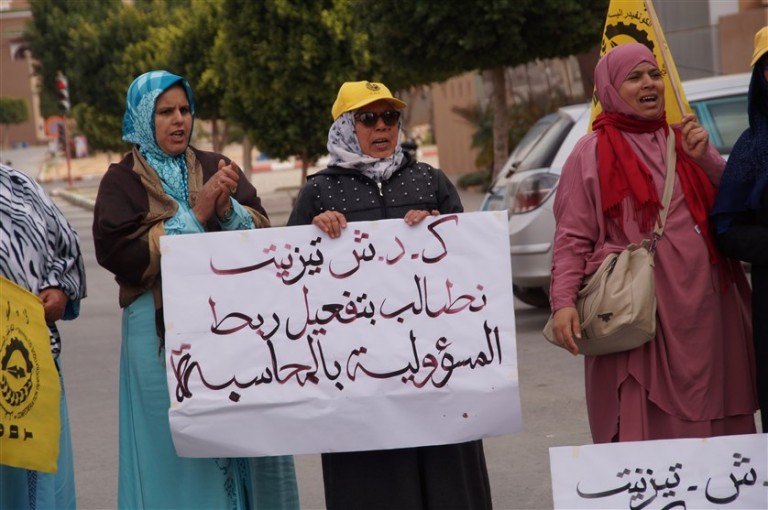 ك.د.ش تيزنيت
نطالب بتفعيل ربط
المسؤولية بالمحاسبة
د.ش.تيزنيت
CDT